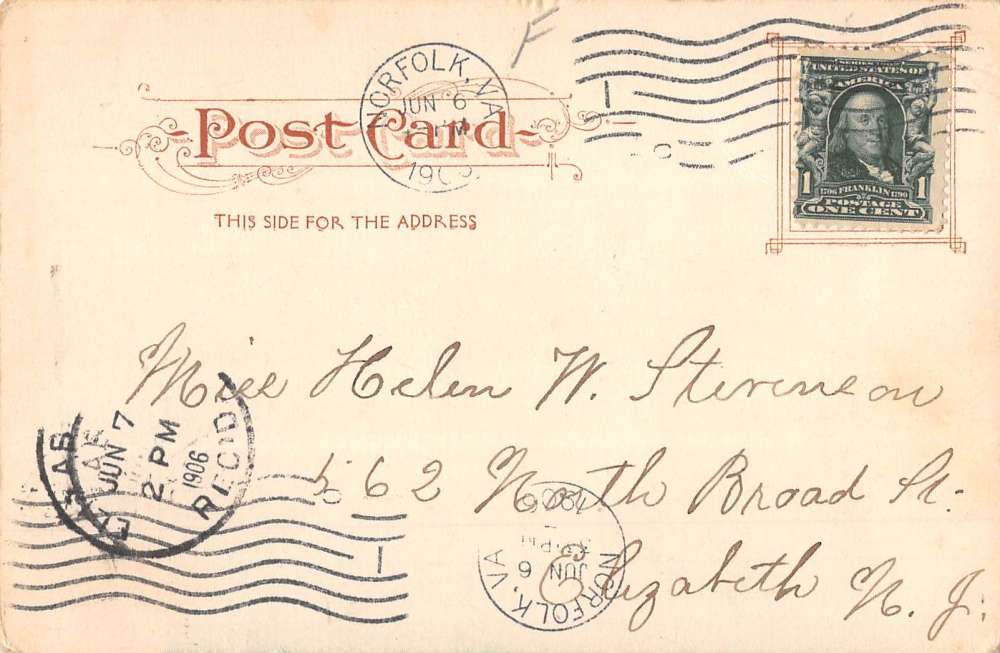 F
NORFOLK, VA
JUN 6
PM
190
1
Post Card
THIS SIDE FOR THE ADDRESS
SERIES 1902
UNITED STATES OF
AMERICA
1 1
1706 FRANKLIN 1790
POSTAGE
ONE CENT
Miss Helen W. Stevenson
562 North Broad St.
Elizabeth N. J.
JUN 7
2 PM
1906
REC'D
1
NORFOLK, VA
JUN 6
PM
1906